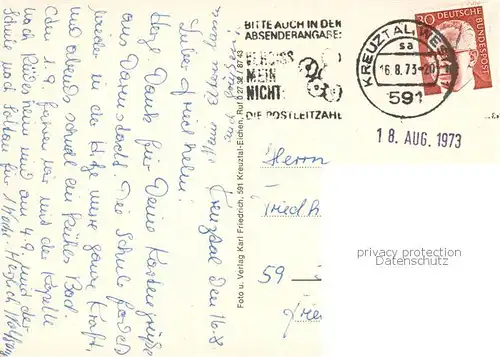 Kreuztal, den 16.8.
Lieber Friedhelm!
Herzl. Dank für Deine Kartengrüße
aus Darmstadt. Die Schule fordert
wieder in der Hitze unsere ganze Kraft,
und abends schnell ein kühles Bad.
Am 1.9. fahren wir mit der Kapelle
nach Rüdesheim und am 4.9. mit der
Schule nach Soltau für 1 Woche. Herzlich Wolfgang
Foto u. Verlag Karl Friedrich, 591 Kreuztal-Eichen, Ruf 0 27 32
BITTE AUCH IN DER
ABSENDERANGABE:
VERGISS
MEIN
NICHT:
DIE POSTLEITZAHL
KREUZTAL, WESTF
sa
16.8.73-20
591
30 DEUTSCHE
BUNDESPOST
18. AUG. 1973
Herrn
Friedh
59
privacy protection
privacy protection